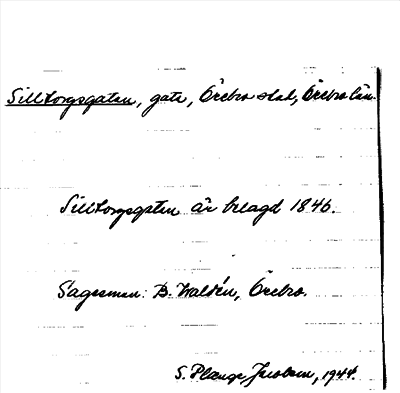 Silltorgsgatan, gata, Örebro stad, Örebro län.
Silltorgsgatan är belagd 1846.
Sagesman: B. Waldén, Örebro.
S. Plange Jacobson, 1944.